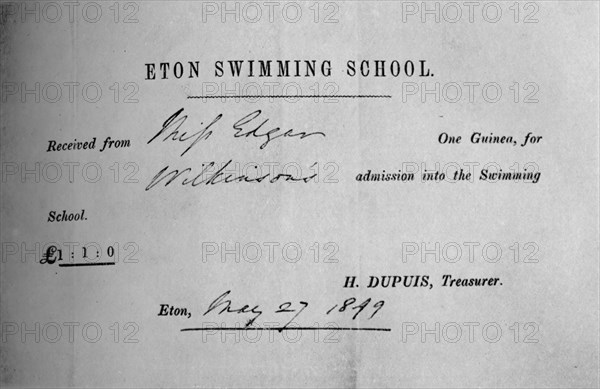 ETON SWIMMING SCHOOL.
Received from Miss Edgar One Guinea, for
Wilkinson's admission into the Swimming
School.
£1 : 1 : 0
H. DUPUIS, Treasurer.
Eton, May 27 1849
PHOTO12